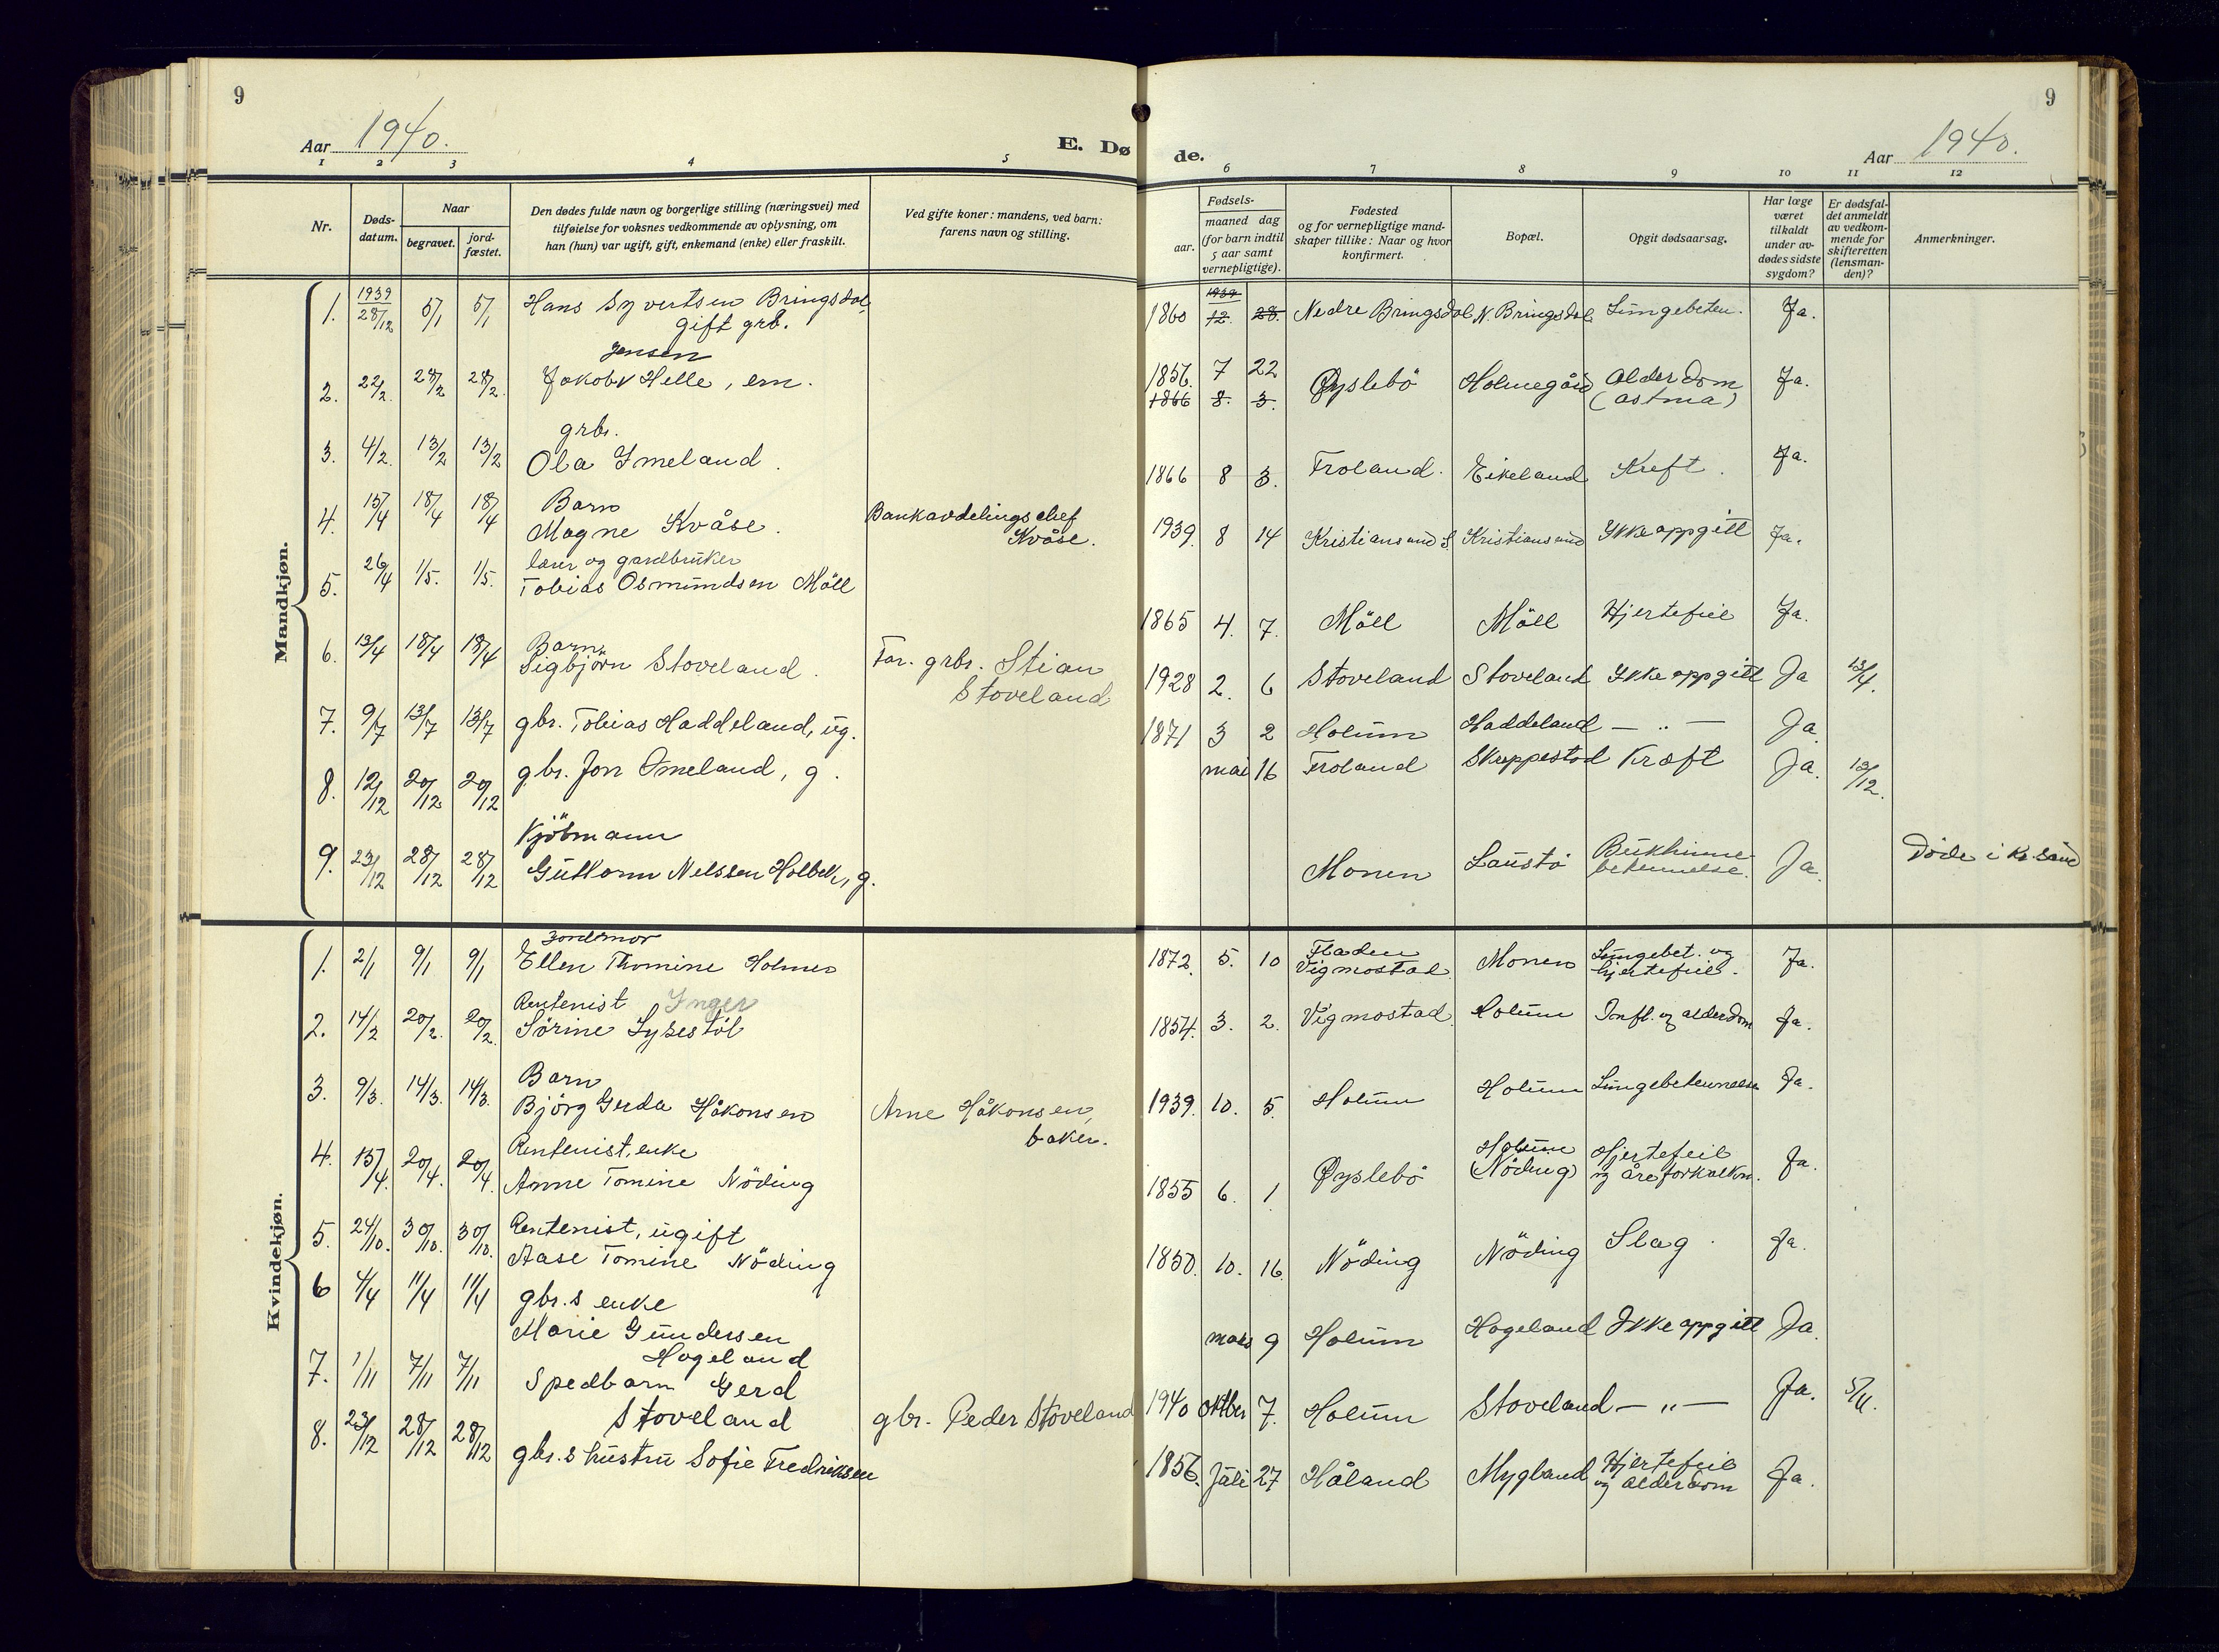 9
Aar 1940.
E. Dø
1 2 3 4 5
Nr.
Døds-
datum.
Naar
begravet.
jord-
fæstet.
Den dødes fulde navn og borgerlige stilling (næringsvei) med
tilføielse for voksnes vedkommende av oplysning, om
han (hun) var ugift, gift, enkemand (enke) eller fraskilt.
Ved gifte koner: mandens, ved barn:
farens navn og stilling.
Mandkjøn.
1. 1939 28/12 5/1 5/1 Hans Syvertsen Bringsdal,
gift grb.
Jensen
2. 22/2. 28/2 28/2. Jakob v Helle, em.
grbr.
3. 4/2. 13/2 13/2 Ola Imeland.
4. 15/4 18/4 18/4 Barn
Magne Kvåse. Bankavdelingschef
Kvåse.
5. 26/4 1/5. 1/5. lærer og gardbruker
Tobias Osmundsen Möll
6. 13/4 18/4 18/4 Barn
Sigbjörn Stoveland. Far. grbr. Stian
Stoveland
7. 9/7 13/7 13/7 gbr. Tobias Haddeland, ug.
8. 12/12 20/12 20/12 gbr. Jon Omeland, g.
Kjöbmann
9. 23/12 28/12 28/12 Guttorm Nelssen Holbek, g.
Kvindekjøn.
1. 2/1 9/1 9/1 Jordemor
Ellen Thomine Holmen
2. 14/2 20/2. 20/2. Rentenist Inger
Sörine Lykestöl
3. 9/3. 14/3. 14/3. Barn
Björg Gerda Håkonsen Arne Håkonsen,
baker.
4. 15/4. 20/4. 20/4. Rentenist, enke
Anne Tomine Nöding
5. 24/10. 30/10. 30/10. Rentenist, ugift
Aase Tomine Nöding
6 4/4 11/4 11/4 gbr.s enke
Marie Gundersen
Hageland
7. 1/11 7/11 7/11 Spedbarn Gerd
Stoveland gbr. Peder Stoveland
8. 23/12 28/12 28/12 gbr.s hustru Sofie Fredriksen
9
de.
Aar 1940.
6 7 8 9 10 11 12
Fødsels-
aar.
maaned dag
(for barn indtil
5 aar samt
vernepligtige).
Fødested
og for vernepligtige mand-
skaper tillike: Naar og hvor
konfirmert.
Bopæl.
Opgit dødsaarsag.
Har læge
været
tilkaldt
under av-
dødes sidste
sygdom?
Er dødsfal-
det anmeldt
av vedkom-
mende for
skifteretten
(lensman-
den)?
Anmerkninger.
1860 1939 12. 28. Nedre Bringsdal N. Bringsdal Lungebeten. Ja.
1856. 7 22 Øyslebö Holmegård Alderdom Ja.
1866 8. 3. (astma)
1866 8 3. Troland. Eikeland Kreft. Ja.
1939. 8 14 Kristiansand S. Kristiansand Ikke oppgitt Ja.
1865 4. 7. Möll Möll Hjertefeil Ja.
1928 2. 6 Stoveland Stoveland Ikke oppgitt Ja 13/4.
1871 3 2 Holum Haddeland — „ — Ja.
mai 16 Troland Skuppestad Kræft Ja. 12/12.
Monen Laustö Bukhinne-
betennelse. Ja. Döde i Kr.sand
1872. 5. 10 Fladen
Vigmostad. Monen Lungebet. og
hjertefeil. Ja.
1854. 3. 2. Vigmostad Holum Infl. og alderdom Ja.
1939. 10. 5. Holum Holum Lungebetennelse Ja.
1855 6. 1 Øyslebö Holum
(Nöding) Hjertefeil
og åreforkalkn. Ja.
1850. 10. 16. Nöding Nöding Slag. Ja.
mars 9 Holum Hageland Ikke oppgitt Ja.
1940 oktber 7. Holum Stoveland — „ — Ja. 5/11.
1856. Juli 27 Håland Mygland Hjertefeil
og alderdom Ja.